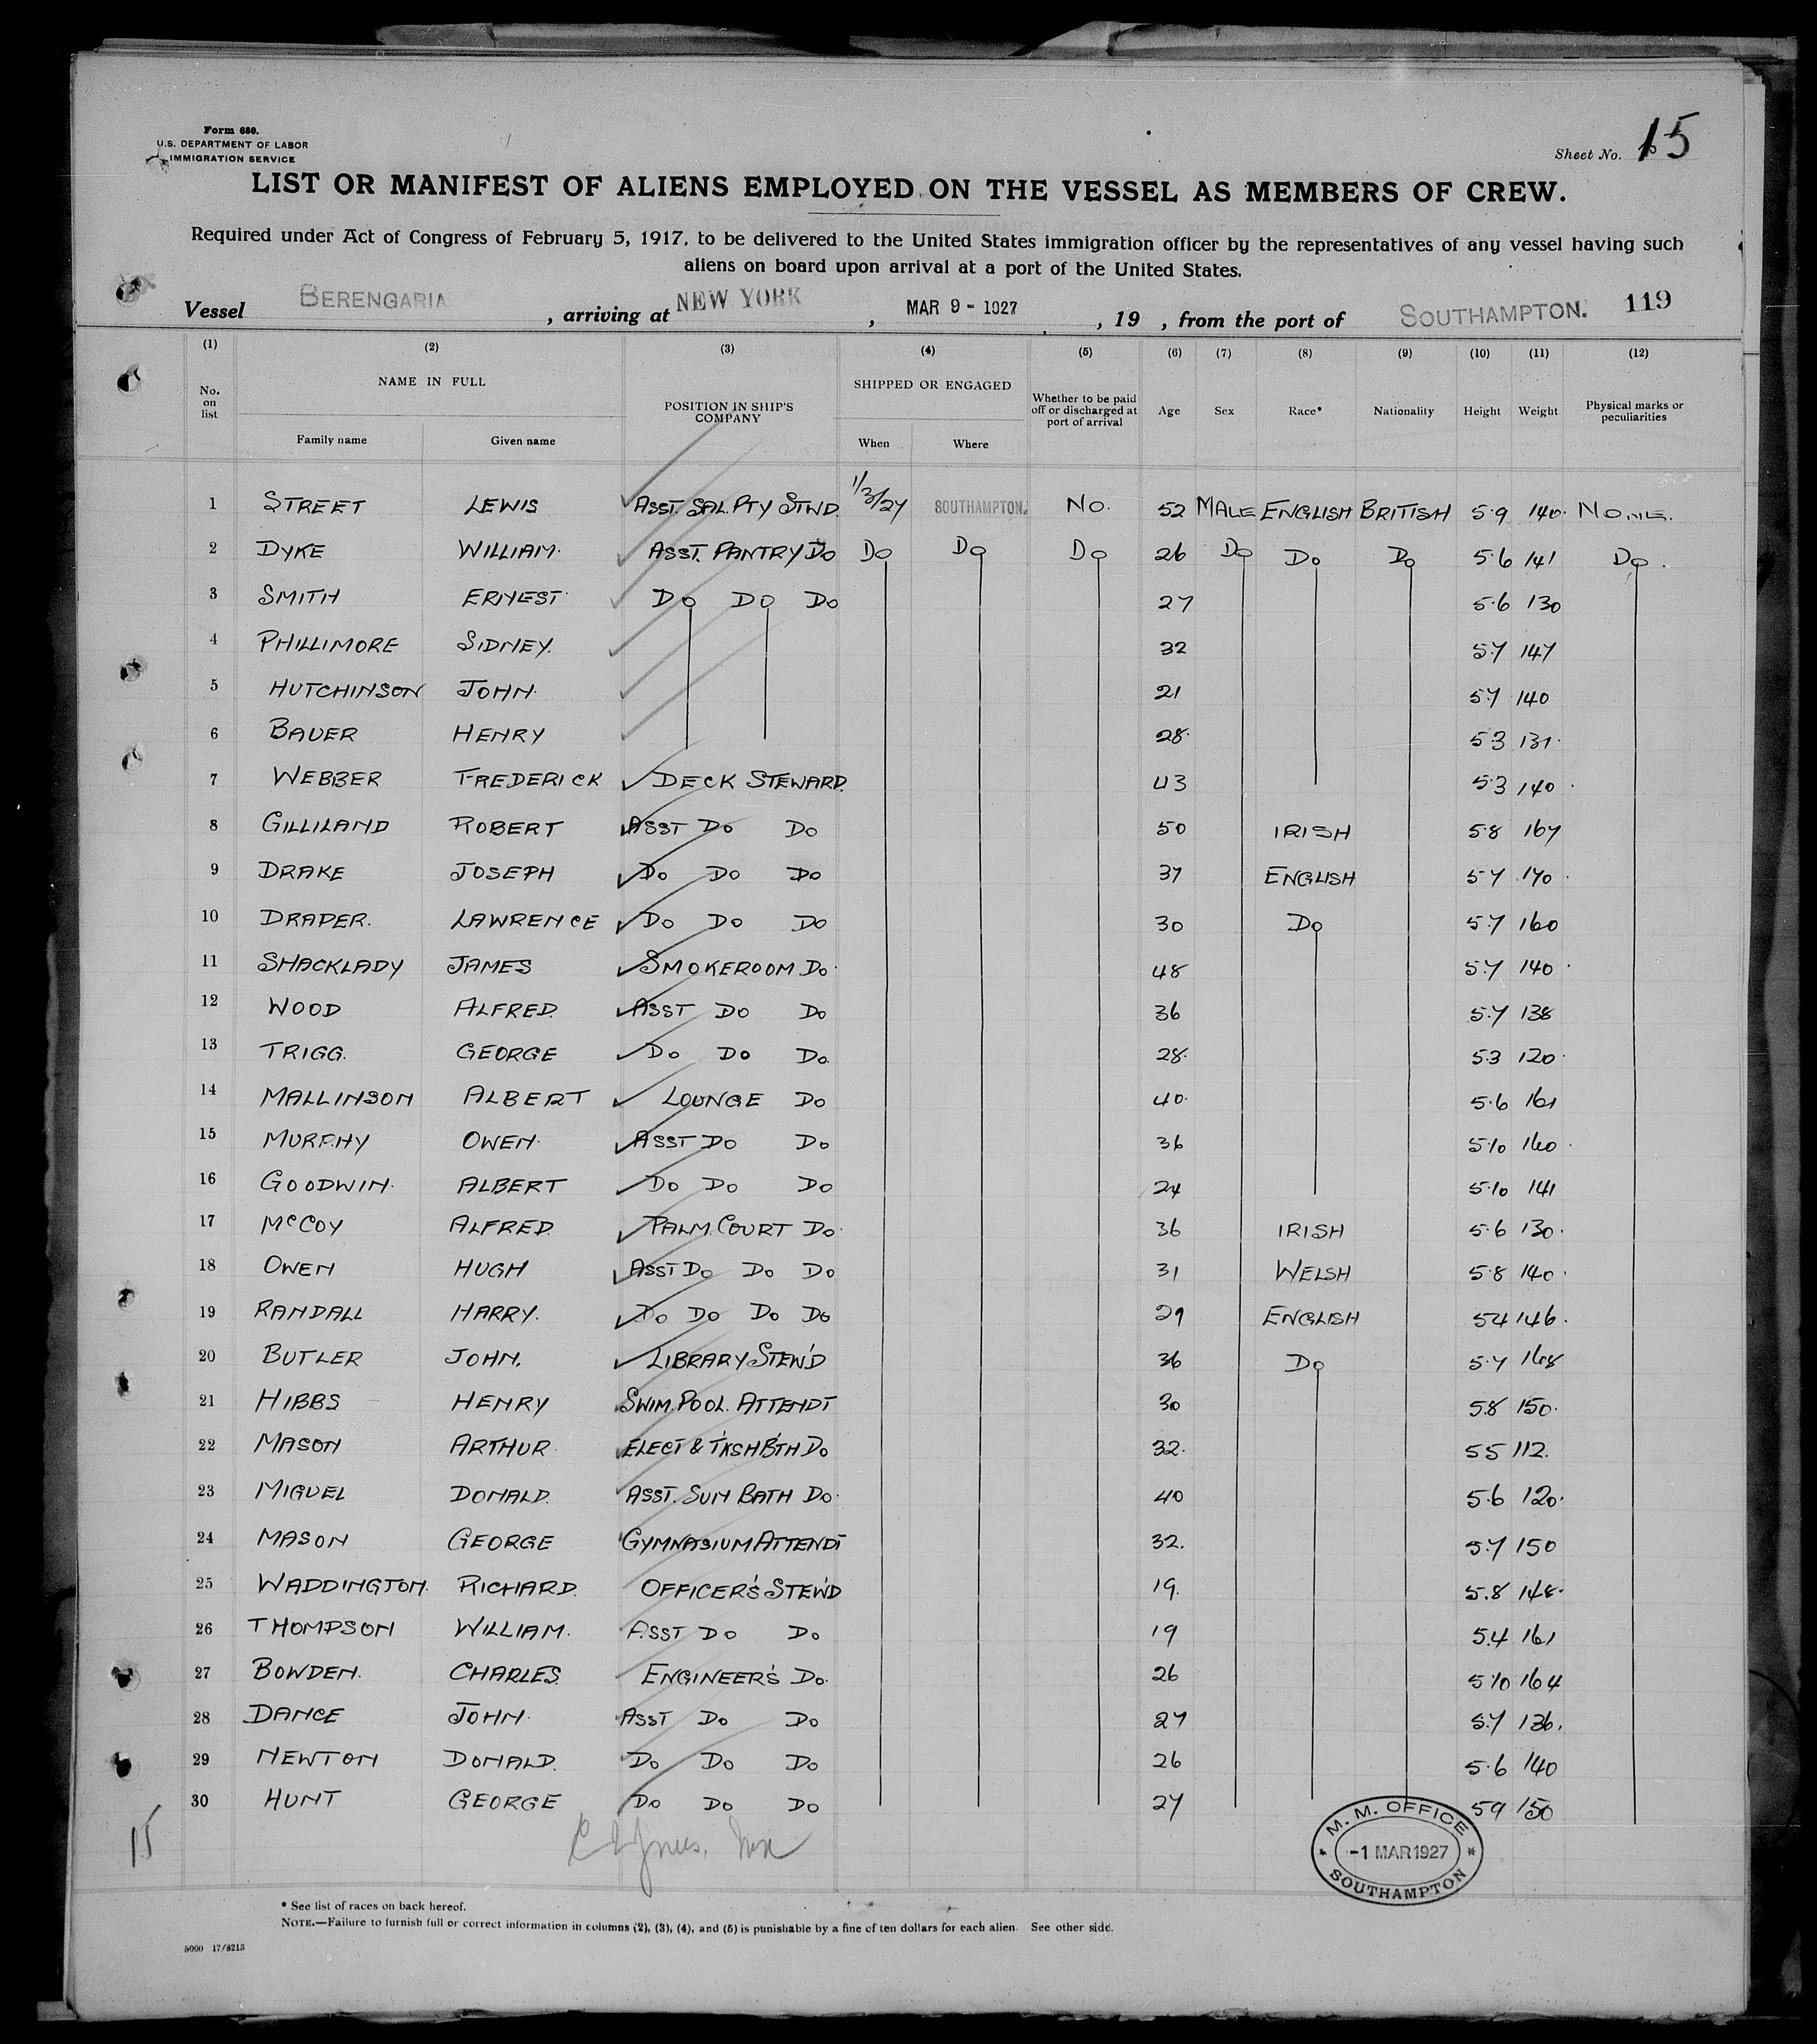 Form 680.
U.S. DEPARTMENT OF LABOR
IMMIGRATION SERVICE
Sheet No. 15
LIST OR MANIFEST OF ALIENS EMPLOYED ON THE VESSEL AS MEMBERS OF CREW.
Required under Act of Congress of February 5, 1917, to be delivered to the United States immigration officer by the representatives of any vessel having such
aliens on board upon arrival at a port of the United States.
Vessel BERENGARIA, arriving at NEW YORK, MAR 9 - 1927, 19 , from the port of SOUTHAMPTON. 119
(1) (2) (3) (4) (5) (6) (7) (8) (9) (10) (11) (12)
No. on list NAME IN FULL Family name Given name POSITION IN SHIP'S COMPANY SHIPPED OR ENGAGED When Where Whether to be paid off or discharged at port of arrival Age Sex Race* Nationality Height Weight Physical marks or peculiarities
1 STREET LEWIS ASST. SAL. PTY STWD. 1/3/27 SOUTHAMPTON. NO. 52 MALE ENGLISH BRITISH 5.9 140. NONE.
2 DYKE WILLIAM. ASST. PANTRY DO DO DO DO 26 DO DO DO 5.6 141 DO.
3 SMITH ERNEST. DO DO DO 27 5.6 130
4 PHILLIMORE SIDNEY. 32 5.7 147
5 HUTCHINSON JOHN. 21 5.7 140
6 BAUER HENRY 28. 5.3 131.
7 WEBBER FREDERICK DECK STEWARD. 43 5.3 140.
8 GILLILAND ROBERT ASST DO DO 50 IRISH 5.8 167
9 DRAKE JOSEPH DO DO DO 37 ENGLISH 5.7 170.
10 DRAPER. LAWRENCE DO DO DO 30 DO 5.7 160
11 SHACKLADY JAMES SMOKEROOM DO. 48 5.7 140.
12 WOOD ALFRED. ASST DO DO 36 5.7 138
13 TRIGG. GEORGE DO DO DO. 28. 5.3 120.
14 MALLINSON ALBERT LOUNGE DO 40. 5.6 161
15 MURPHY OWEN. ASST DO DO 36 5.10 160.
16 GOODWIN. ALBERT DO DO DO 24 5.10 141
17 McCOY ALFRED. PALM COURT DO. 36 IRISH 5.6 130.
18 OWEN HUGH ASST DO DO DO 31 WELSH 5.8 140.
19 RANDALL HARRY. DO DO DO DO 29 ENGLISH 5.4 146.
20 BUTLER JOHN. LIBRARY STEW'D 36 DO 5.7 168
21 HIBBS HENRY SWIM. POOL. ATTENDT 30 5.8 150.
22 MASON ARTHUR ELECT & T'KSH B'TH DO 32. 5.5 112.
23 MIGUEL DONALD. ASST. SUN BATH DO. 40 5.6 120.
24 MASON GEORGE GYMNASIUM ATTENDT 32. 5.7 150
25 WADDINGTON. RICHARD. OFFICER'S STEW'D 19. 5.8 148.
26 THOMPSON WILLIAM. ASST DO DO 19 5.4 161
27 BOWDEN. CHARLES. ENGINEER'S DO. 26 5.10 164
28 DANCE JOHN. ASST DO DO 27 5.7 136.
29 NEWTON DONALD. DO DO DO 26 5.6 140
30 HUNT GEORGE DO DO DO 27 5.9 150
15
M. M. OFFICE
-1 MAR 1927
SOUTHAMPTON
* See list of races on back hereof.
NOTE.—Failure to furnish full or correct information in columns (2), (3), (4), and (5) is punishable by a fine of ten dollars for each alien. See other side.
5000 17/8213